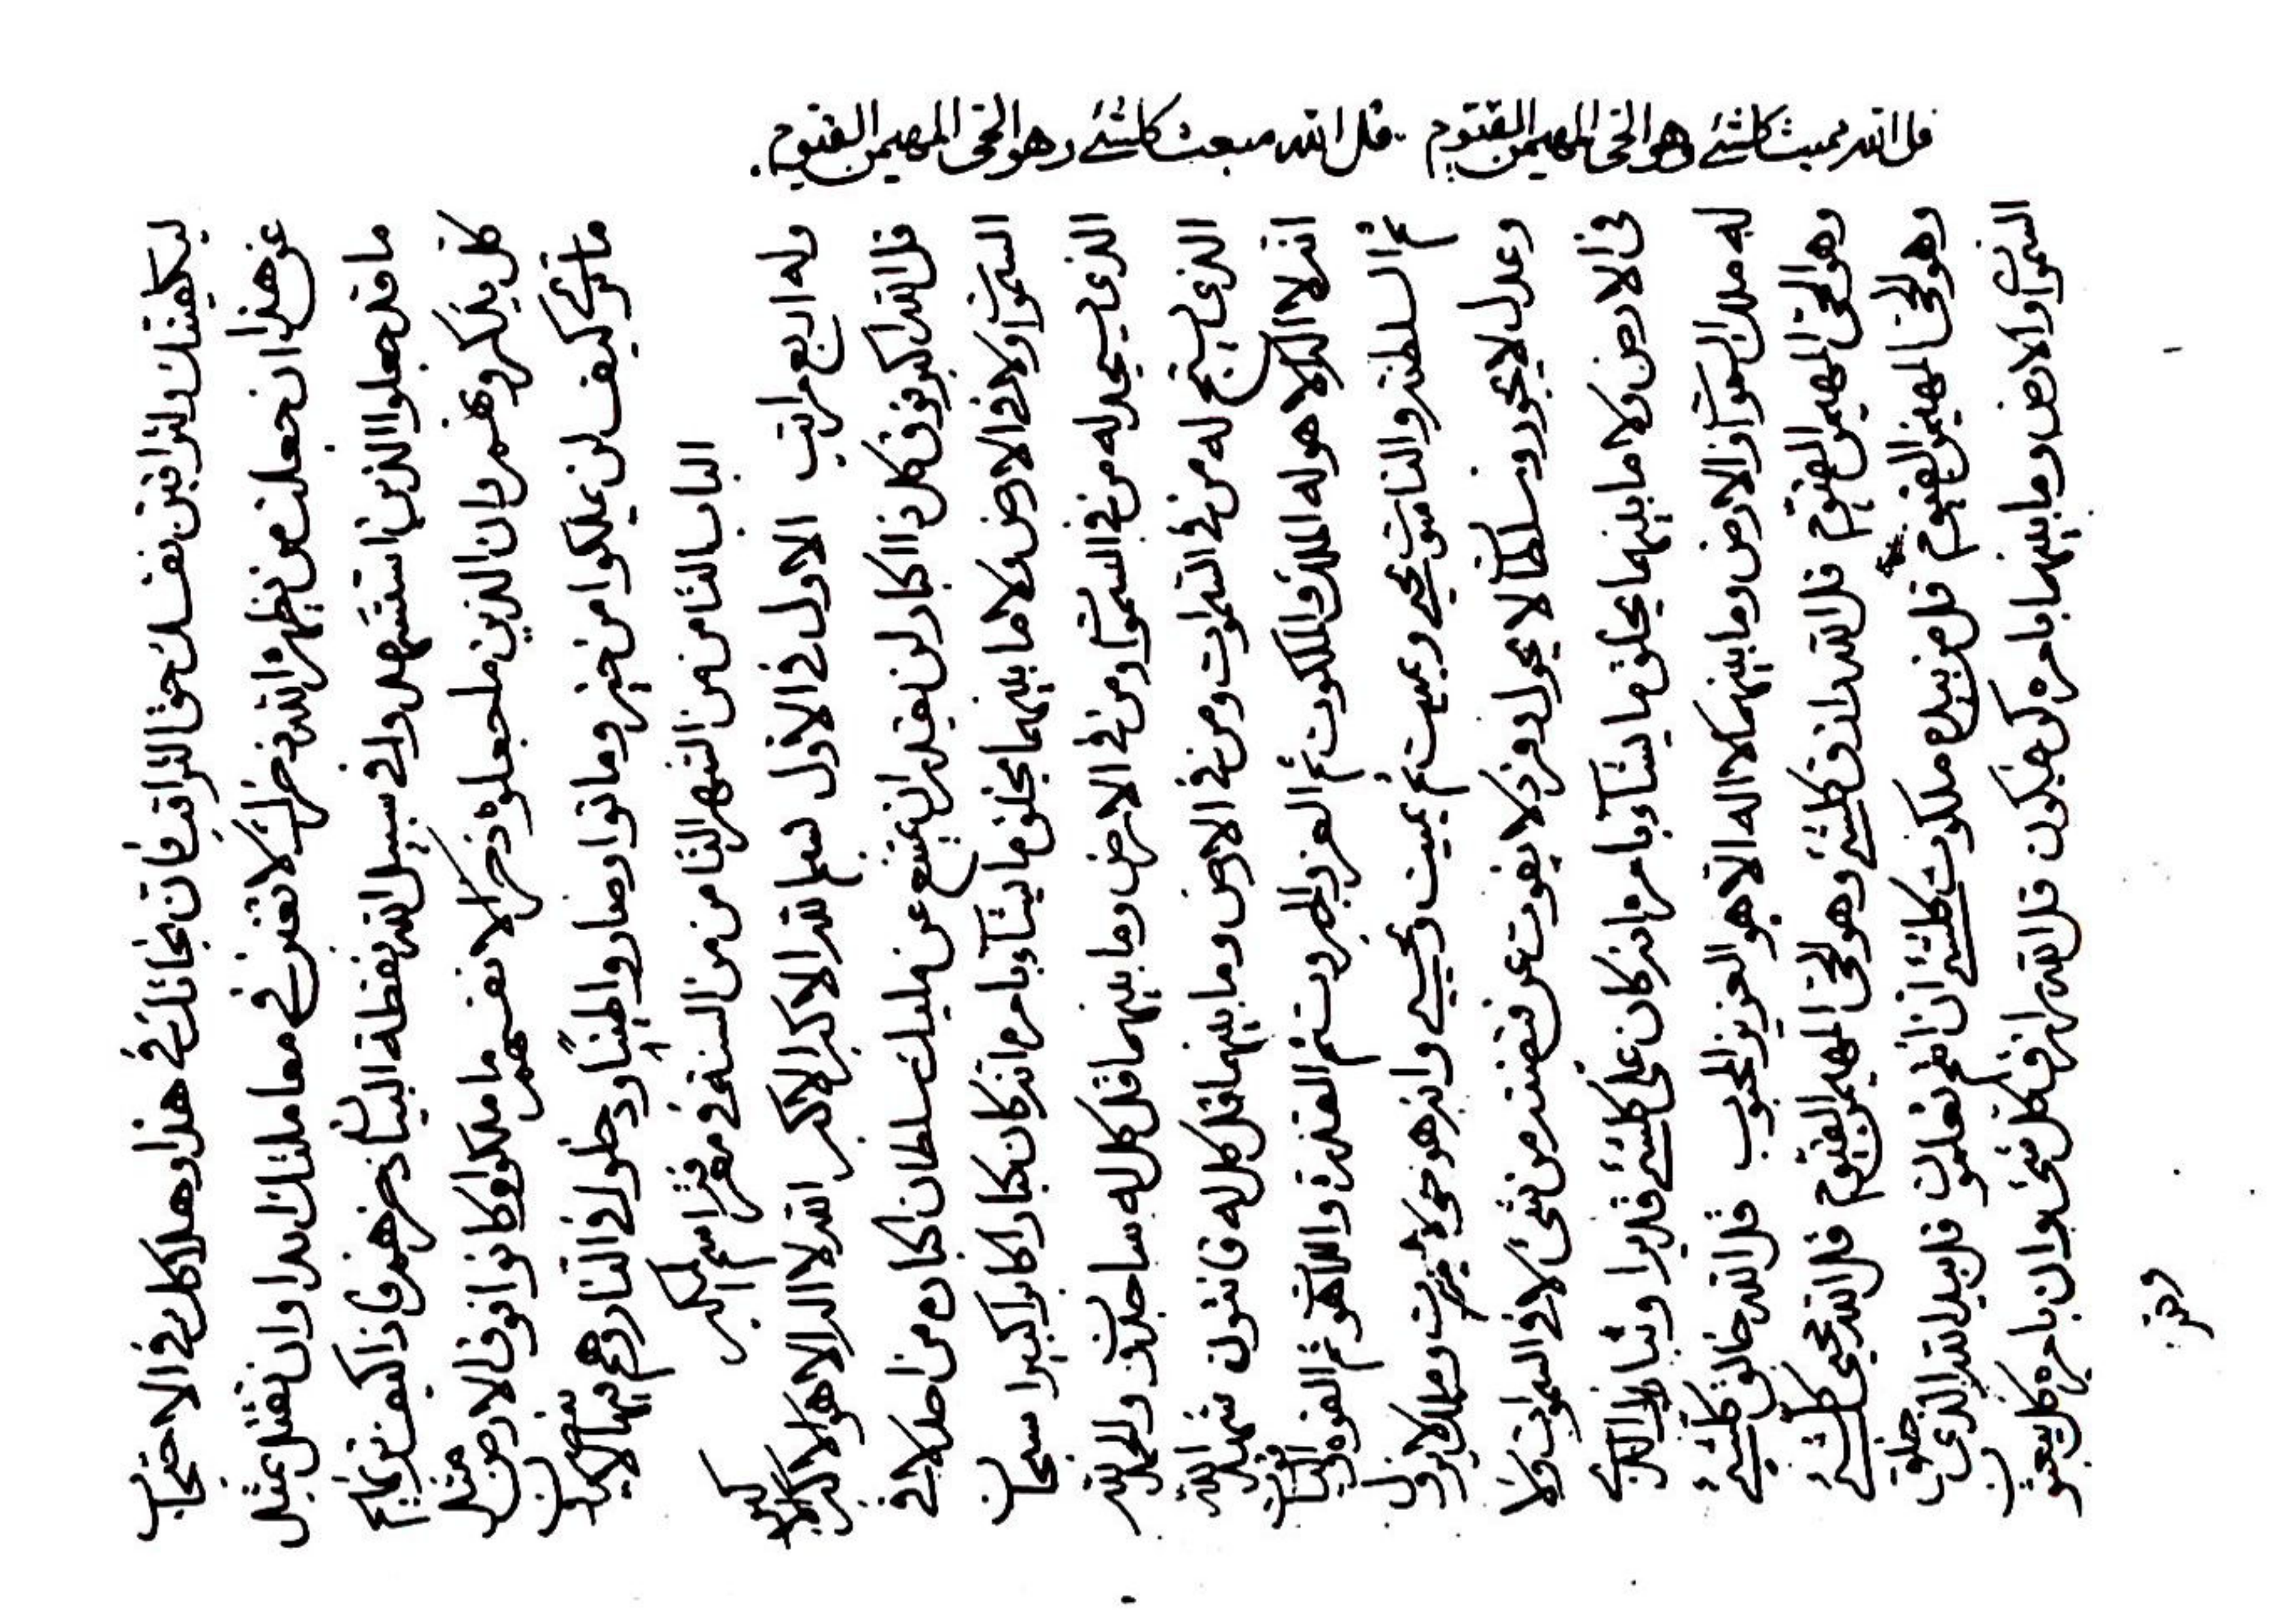 ليكفينك ولتراقبن نفسك حق التراقب فان نجاتك في هذا وهلاكك في الاحتجاب
عن هذا ان جعلت من يظهره الله ذخرك لا تغرن في معاملتك ابدا وان بمثل
ما قد جعلوا الذين استشهدوا في سبيل الله نقطة البيان ذخرهم فاذا كيف
كل يذكروهم وان الذين ما جعلوه ذخرا لانفسهم ما ملكوا وكانوا فوق الارض مثل
ما ترى كيف لن يملكوا من خير وماتوا وصاروا طينا ودخلوا في النار وهم فيها
الباب الثامن من الشهر الثامن من السنة في معرفة اسم المكبر
وله اربع مراتب الاول في الاول بسم الله الاكبر الاكبر الله لا اله الا هو الاكبر الاكبر
قل الله اكبر فوق كل ذا اكبار لن يقدر ان يمتنع عن مليك سلطان اكباره من احد لا في
السموات ولا في الارض ولا ما بينهما يخلق ما يشآء بامره انه كان كبارا كابرا كبيرا سبحان
الذي يسجد له من في السموات ومن في الارض وما بينهما قل كل له ساجدون والحمد لله
الذي يسبح له من في السموات ومن في الارض وما بينهما قل كل له قانتون شهد الله
انه لا اله الا هو له الملك والملكوت ثم العز والجبروت ثم القدرة واللاهوت ثم القوة والياقوت
ثم السلطنة والناسوت يحيي ويميت ثم يميت ويحيي وانه هو حي لا يموت وملك لا يزول
وعدل لا يجور وسلطان لا يحول وفرد لا يفوت عن قبضته من شئ لا في السموات ولا
في الارض ولا ما بينهما يخلق ما يشآء بامره انه كان على كلشئ قديرا وتبارك الذي
له ملك السموات والارض وما بينهما لا اله الا هو العزيز المحبوب قل الله خالق كلشئ
وهو الحي المهيمن القيوم قل الله رازق كلشئ وهو الحي المهيمن القيوم قل الله محيي كلشئ
وهو الحي المهيمن القيوم قل من بيده ملكوت كلشئ ان انتم تعلمون قل بيد الله الذي خلق
السموات والارض وما بينهما بامره كن فيكون قل الله فوق كل شئ وان بامره كل يبعثون
قل الله مميت كلشئ وهو الحي المهيمن القيوم قل الله مبعث كلشئ وهو الحي المهيمن القيوم